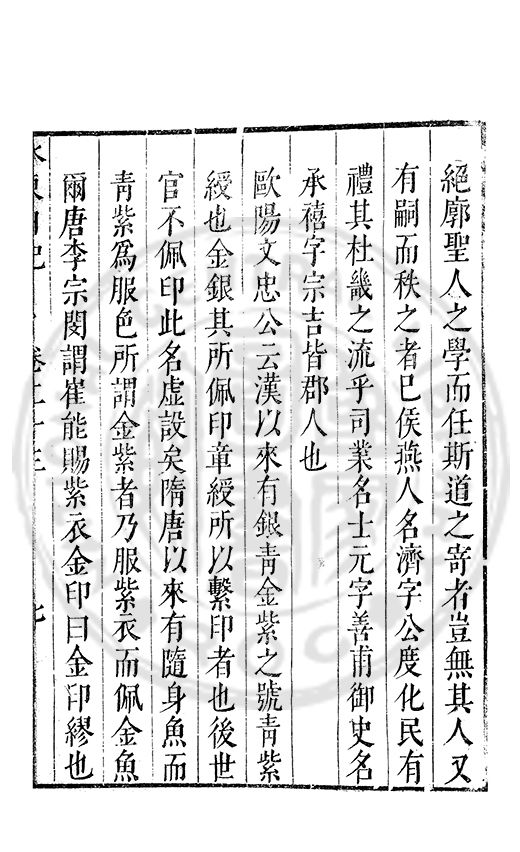 絕廓聖人之學而任斯道之寄者豈無其人又
有嗣而秩之者巳侯燕人名濟字公度化民有
禮其杜畿之流乎司業名士元字善甫御史名
承禧字宗吉皆郡人也
歐陽文忠公云漢以來有銀青金紫之號青紫
綬也金銀其所佩印章綬所以繫印者也後世
官不佩印此名虛設矣隋唐以來有隨身魚而
青紫爲服色所謂金紫者乃服紫衣而佩金魚
爾唐李宗閔謂崔能賜紫衣金印曰金印繆也